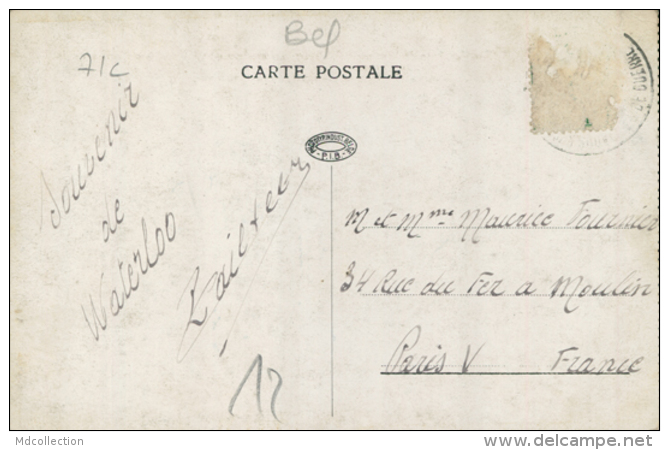 Bel
71c
CARTE POSTALE
Souvenir
de
Waterloo
P.I.B.
M et Mme Maurice Fournier
34 Rue du Fer a Moulin
Paris V France
12
Mdcollection
www.delcampe.net